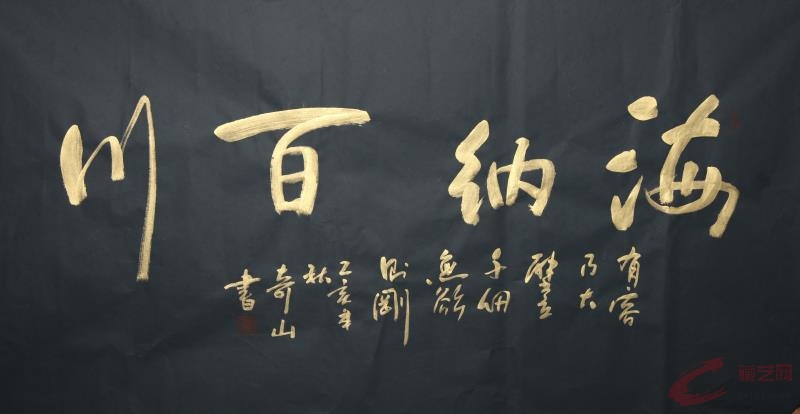 海纳百川
有容
乃大
壁立
千仞
無欲
则剛
己亥年
秋
奇山
書
藏艺网